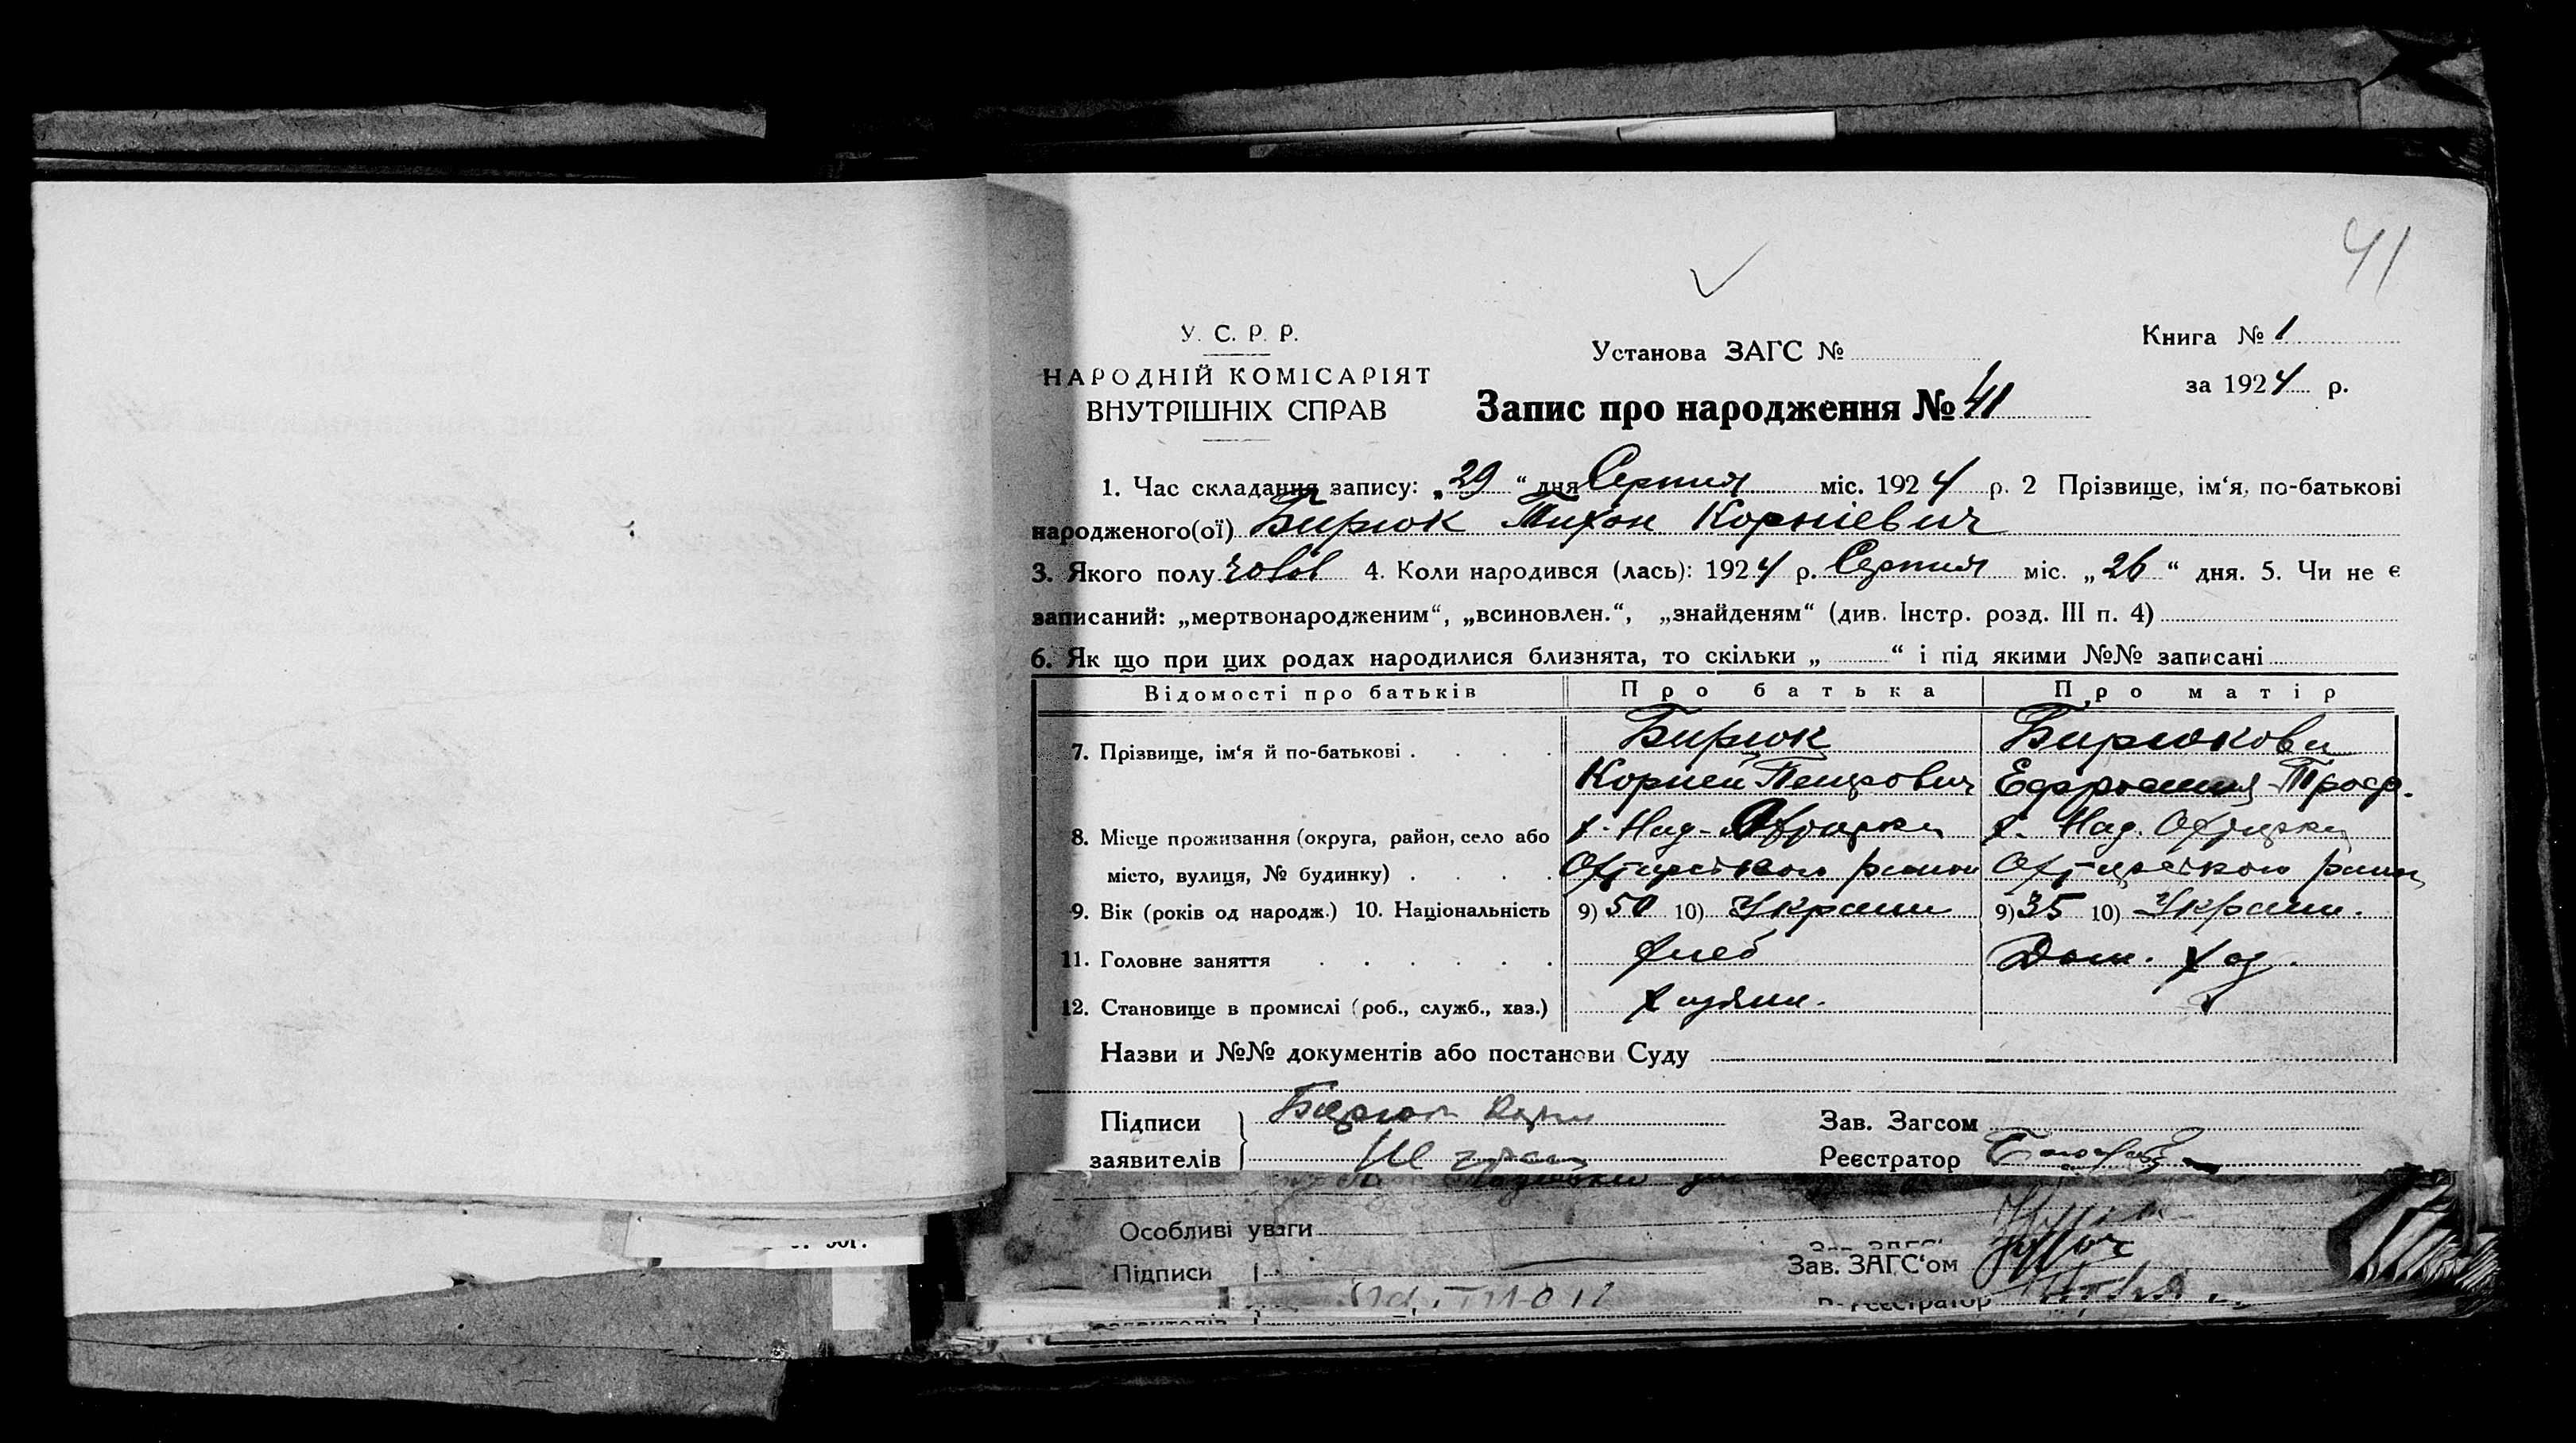 41
У. С. Р. Р.
НАРОДНІЙ КОМІСАРІЯТ
ВНУТРІШНІХ СПРАВ
Установа ЗАГС №
Запис про народження № 41
Книга № 1
за 1924 р.
1. Час складання запису: „29“ дня Серпня міс. 1924 р. 2 Прізвище, ім‘я, по-батькові
народженого(ої) Бирюк Тихон Корніевич
3. Якого полу чолов 4. Коли народився (лась): 1924 р. Серпня міс. „26“ дня. 5. Чи не є
записаний: „мертвонародженим“, „всиновлен.“, „знайденям“ (див. Інстр. розд. III п. 4)
6. Як що при цих родах народилися близнята, то скільки „ “ і під якими №№ записані
Відомості про батьків Про батька Про матір
7. Прізвище, ім‘я й по-батькові . . . . Бирюк Бирюкова
Корней Петрович Ефросиния Троф.
8. Місце проживання (округа, район, село або х. Над- х. Над.
місто, вулиця, № будинку) . . . .
9. Вік (років од народж.) 10. Національність 9) 50 10) Украин 9) 35 10) Украин.
11. Головне заняття . . . . . . хлеб Дом. хоз.
12. Становище в промислі (роб., служб., хаз.) хозяин.
Назви и №№ документів або постанови Суду
Підписи Бирюк
заявителів
Зав. Загсом
Реєстратор
Особливі уваги
Підписи
Зав. ЗАГС‘ом
Реєстратор